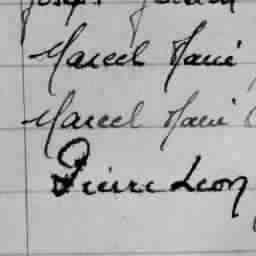 Joseph
Marcel Marie
Marcel Marie
Pierre Leon